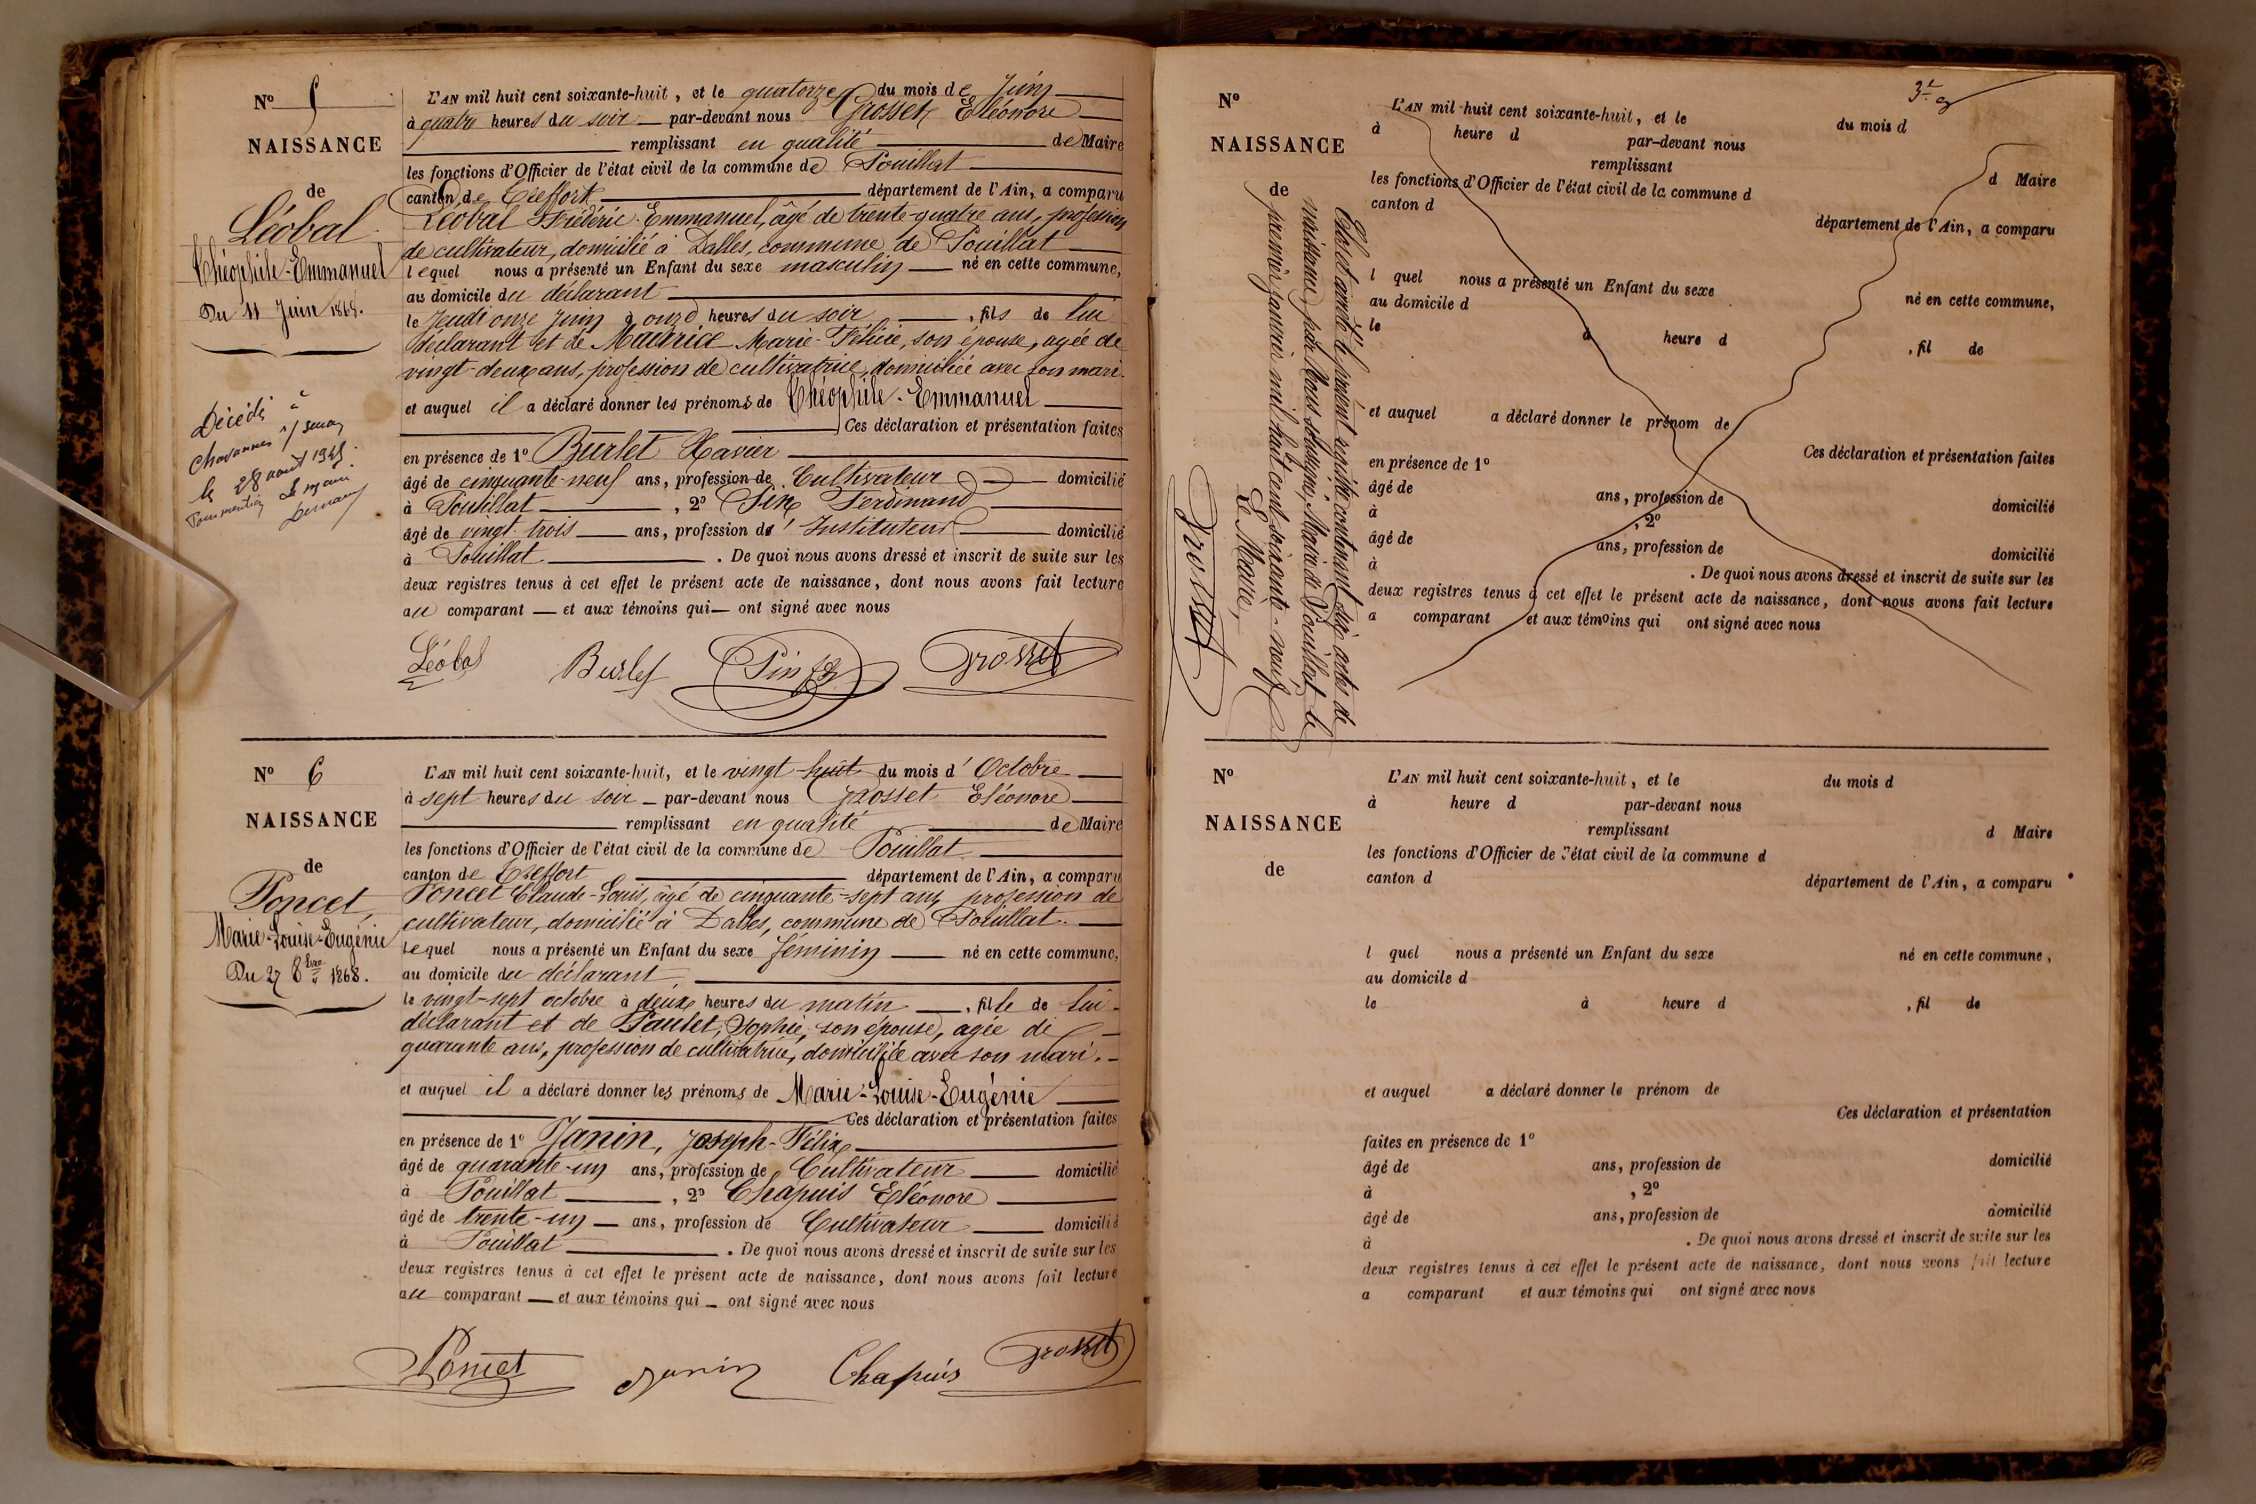 N° 5
NAISSANCE
de
Léobal
Théophile-Emmanuel
Du 11 Juin 1868.
Décédé à
Chavannes s/ Suran
le 28 août 1945.
Le maire
L'AN mil huit cent soixante-huit, et le quatorze du mois de Juin
à quatre heures du soir par-devant nous Grosset Eléonore
remplissant en qualité de Maire
les fonctions d'Officier de l'état civil de la commune de Pouillat
canton de Treffort département de l'Ain, a comparu
Léobal Frédéric-Emmanuel, âgé de trente-quatre ans, profession
de cultivateur, domicilié à Dalles, commune de Pouillat
lequel nous a présenté un Enfant du sexe masculin né en cette commune,
au domicile du déclarant
le Jeudi onze Juin à onze heures du soir, fils de lui
déclarant et de Maurice Marie-Félicie, son épouse, agée de
vingt-deux ans, profession de cultivatrice, domiciliée avec son mari.
et auquel il a déclaré donner les prénoms de Théophile-Emmanuel
Ces déclaration et présentation faites
en présence de 1° Burlet Xavier
âgé de cinquante-neuf ans, profession de Cultivateur domicilié
à Pouillat, 2° Pin Ferdinand
âgé de vingt-trois ans, profession d'Instituteur domicilié
à Pouillat. De quoi nous avons dressé et inscrit de suite sur les
deux registres tenus à cet effet le présent acte de naissance, dont nous avons fait lecture
au comparant et aux témoins qui ont signé avec nous
Léobal Burlet Pin Grosset
N° 6
NAISSANCE
de
Poncet
Marie-Louise-Eugénie
Du 27 8bre 1868.
L'AN mil huit cent soixante-huit, et le vingt-huit du mois d'Octobre
à sept heures du soir par-devant nous Grosset Eléonore
remplissant en qualité de Maire
les fonctions d'Officier de l'état civil de la commune de Pouillat
canton de Treffort département de l'Ain, a comparu
Poncet Claude-Louis, âgé de cinquante-sept ans, profession de
cultivateur, domicilié à Dalles, commune de Pouillat.
lequel nous a présenté un Enfant du sexe féminin né en cette commune,
au domicile du déclarant
le vingt-sept octobre à deux heures du matin, fille de lui
déclarant et de Paulet, Sophie, son épouse, agée de
quarante ans, profession de cultivatrice, domiciliée avec son mari.
et auquel il a déclaré donner les prénoms de Marie-Louise-Eugénie
Ces déclaration et présentation faites
en présence de 1° Janin, Joseph-Félix
âgé de quarante-un ans, profession de Cultivateur domicilié
à Pouillat, 2° Chapuis Eléonore
âgé de trente-un ans, profession de Cultivateur domicilié
à Pouillat. De quoi nous avons dressé et inscrit de suite sur les
deux registres tenus à cet effet le présent acte de naissance, dont nous avons fait lecture
au comparant et aux témoins qui ont signé avec nous
Poncet Janin Chapuis Grosset
N°
NAISSANCE
de
Clos et arrêté le présent registre contenant six actes de
naissance, par Nous soussigné, Maire de Pouillat, le
premier janvier mil huit cent soixante-neuf
Le Maire,
Grosset
L'AN mil huit cent soixante-huit, et le du mois d
à heure d par-devant nous
remplissant
d Maire
les fonctions d'Officier de l'état civil de la commune d
canton d département de l'Ain, a comparu
l quel nous a présenté un Enfant du sexe né en cette commune,
au domicile d
le à heure d, fil de
et auquel a déclaré donner le prénom de
Ces déclaration et présentation faites
en présence de 1°
âgé de ans, profession de domicilié
à, 2°
âgé de ans, profession de domicilié
à. De quoi nous avons dressé et inscrit de suite sur les
deux registres tenus à cet effet le présent acte de naissance, dont nous avons fait lecture
a comparant et aux témoins qui ont signé avec nous
N°
NAISSANCE
de
L'AN mil huit cent soixante-huit, et le du mois d
à heure d par-devant nous
remplissant d Maire
les fonctions d'Officier de l'état civil de la commune d
canton d département de l'Ain, a comparu
l quel nous a présenté un Enfant du sexe né en cette commune,
au domicile d
le à heure d, fil de
et auquel a déclaré donner le prénom de
Ces déclaration et présentation
faites en présence de 1°
âgé de ans, profession de domicilié
à, 2°
âgé de ans, profession de domicilié
à. De quoi nous avons dressé et inscrit de suite sur les
deux registres tenus à cet effet le présent acte de naissance, dont nous avons fait lecture
a comparant et aux témoins qui ont signé avec nous